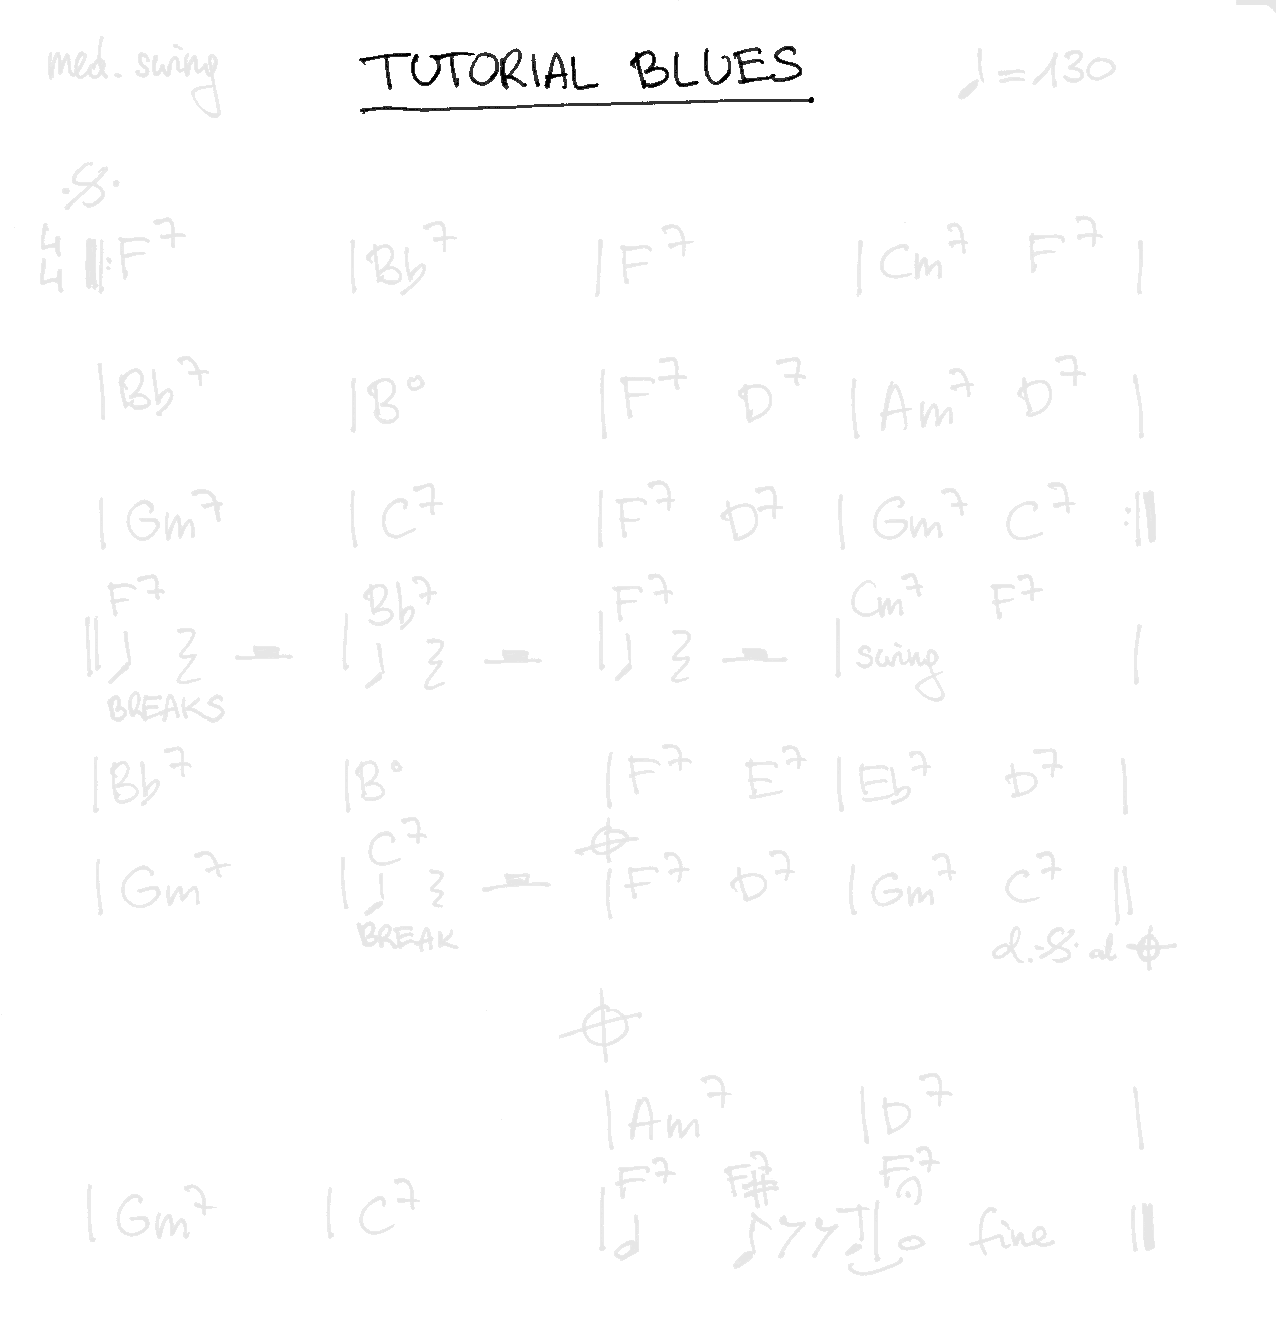 med. swing TUTORIAL BLUES ♩=130
𝄋
4/4 𝄆 F7 | Bb7 | F7 | Cm7 F7 |
| Bb7 | B° | F7 D7 | Am7 D7 |
| Gm7 | C7 | F7 D7 | Gm7 C7 𝄇
F7 Bb7 F7 Cm7 F7
swing
BREAKS
| Bb7 | B° | F7 E7 | Eb7 D7 |
C7
| Gm7 | | F7 D7 | Gm7 C7 ||
BREAK d.𝄋. al 𝄌
𝄌
| Am7 | D7 |
F7 F#7 F7
| Gm7 | C7 | fine